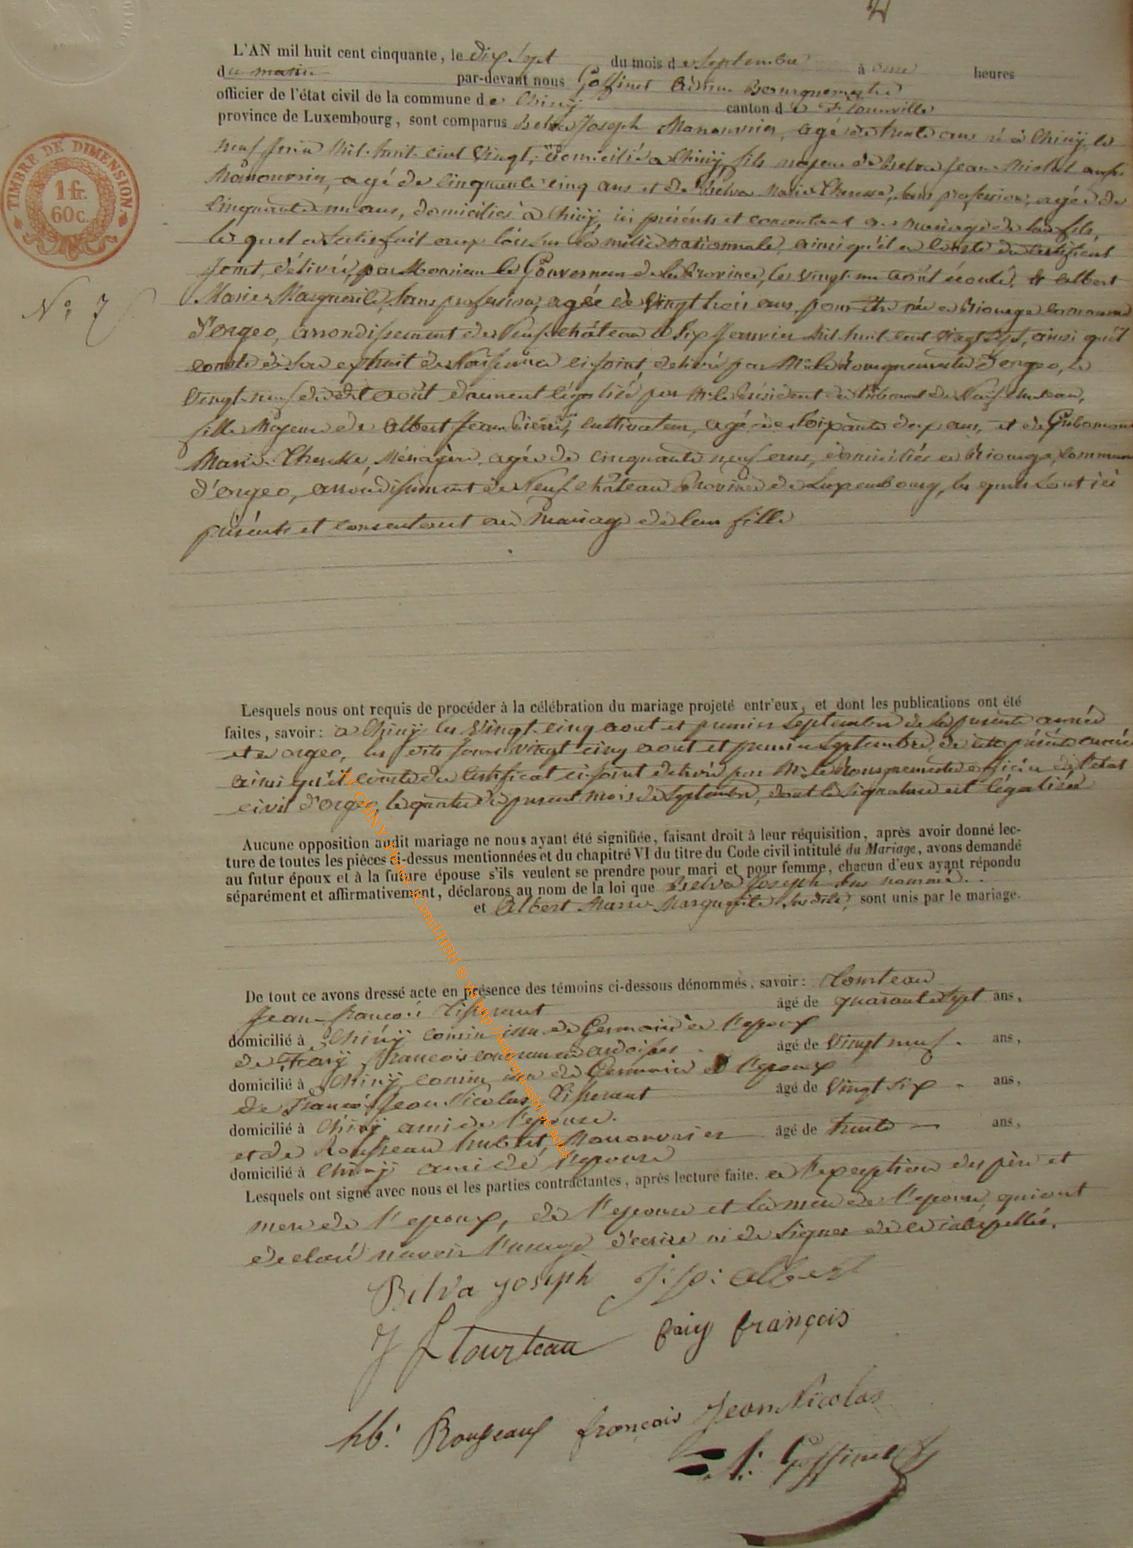 L'AN mil huit cent cinquante, le dix sept du mois de Septembre à onze heures
du matin par-devant nous Goffinet Bourguemestre
officier de l'état civil de la commune de Chiny canton de Florenville
province de Luxembourg, sont comparus Belva Joseph Manouvrier, agé de trente ans né à Chiny le
neuf Mil huit cent vingt, domicilié a Chiny fils majeur de Belva Jean Michel aussi
Manouvrier, agé de Cinquante cinq ans et de Marie Therese, sans profession, agée de
Cinquante ans, domiciliés à Chiny, ici présents et consentant au mariage de leur fils,
lequel a satisfait aux lois sur la milice nationale, ainsi qu'il conste du certificat
Joint, délivré par Monsieur le Gouverneur de la Province, le vingt un août écoulé, & Albert
Marie Marguerite, sans profession, agée de Vingt trois ans, pour être née a commune
d'orgeo, arrondissement de Neufchâteau le six Janvier Mil huit cent vingt sept, ainsi qu'il
conste de son extrait de Naissance ci joint, délivré par Mr le Bourguemestre d'orgeo, le
Vingt neuf dudit août dûment légalisé par Mr le Président du tribunal de Neufchâteau,
fille Majeure de Albert Jean Pierre, cultivateur, agé de soixante deux ans, et de
Marie Therese Ménagère, agée de cinquante neuf ans, domiciliés a commune
d'orgeo, arrondissement de Neufchâteau Province de Luxembourg, les quels sont ici
présents et consentant au Mariage de leur fille
N° 7
TIMBRE DE DIMENSION
1 fr.
60 c.
Lesquels nous ont requis de procéder à la célébration du mariage projeté entr'eux, et dont les publications ont été
faites, savoir: a Chiny les Vingt cinq aout et premier Septembre de la présente année
et a orgeo, les dits jours vingt cinq aout et premier Septembre de cette présente année
ainsi qu'il conste du Certificat ci joint délivré par Mr le Bourguemestre officier de l'état
civil d'orgeo, le quatre du présent mois de Septembre, dont la signature est légalisée
Aucune opposition audit mariage ne nous ayant été signifiée, faisant droit à leur réquisition, après avoir donné lec-
ture de toutes les pièces ci-dessus mentionnées et du chapitré VI du titre du Code civil intitulé du Mariage, avons demandé
au futur époux et à la future épouse s'ils veulent se prendre pour mari et pour femme, chacun d'eux ayant répondu
séparément et affirmativement, déclarons au nom de la loi que Belva Joseph
et Albert Marie Marguerite sont unis par le mariage.
De tout ce avons dressé acte en présence des témoins ci-dessous dénommés, savoir: Tourteau
Jean-françois Tisserant âgé de quarante sept ans,
domicilié à Chiny cousin issu de Germain de l'époux
de Faiy François âgé de Vingt neuf ans,
domicilié à Chiny cousin issu de Germain de l'époux
de François Jean Nicolas Tisserant âgé de Vingt six ans,
domicilié à Chiny ami de l'épouse.
et de Rousseau Hubert, Manouvrier âgé de trente ans,
domicilié à Chiny ami de l'épouse
Lesquels ont signé avec nous et les parties contractantes, après lecture faite. a l'exception des père et
mere de l'epoux, de l'epouse et la mere de l'epouse, qui ont
declaré n'avoir l'usage d'écrire ni de signer de ce interpellés.
Bilva joseph J: p: albert
J f tourteau faiy françois
hb: Rousseaux françois Jean Nicolas
Goffinet